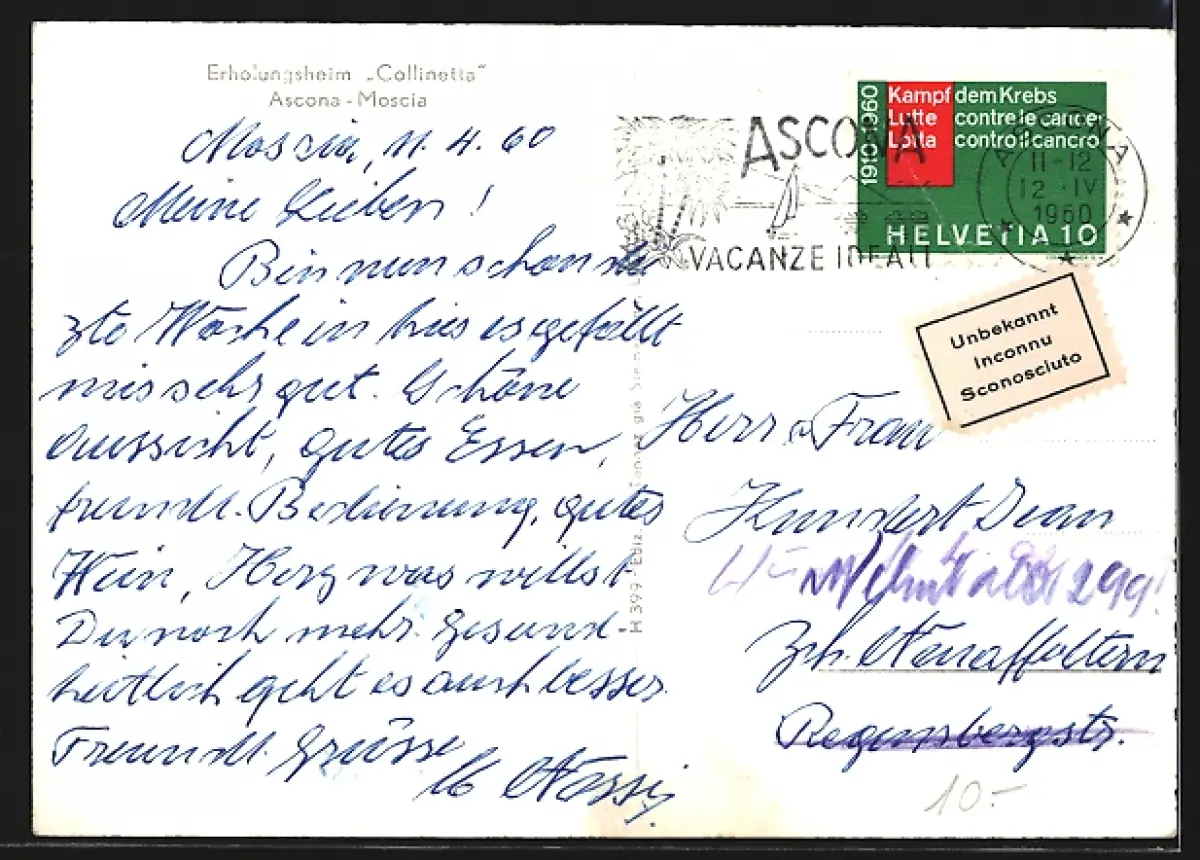 Erholungsheim „Collinetta"
Ascona - Moscia
Moscia, 11. 4. 60
Meine Lieben!
Bin nun schon die
2te Woche in hier es gefällt
mir sehr gut. Schöne
Aussicht, gutes Essen,
freundl. Bedienung, gutes
Wein, Herz was willst
Du noch mehr. Gesund-
heitlich geht es auch besser.
Freundl. Grüsse
H 399 Ediz.
1910-1960
Kampf dem Krebs
Lutte contre le cancer
Lotta contro il cancro
HELVETIA 10
ASCONA
VACANZE IDEALI
ASCONA
11-12
12 · IV
1960
Unbekannt
Inconnu
Sconosciuto
Herr u Frau
Kundert
299
Zch. Neuaffoltern
Regensbergstr.
10.-